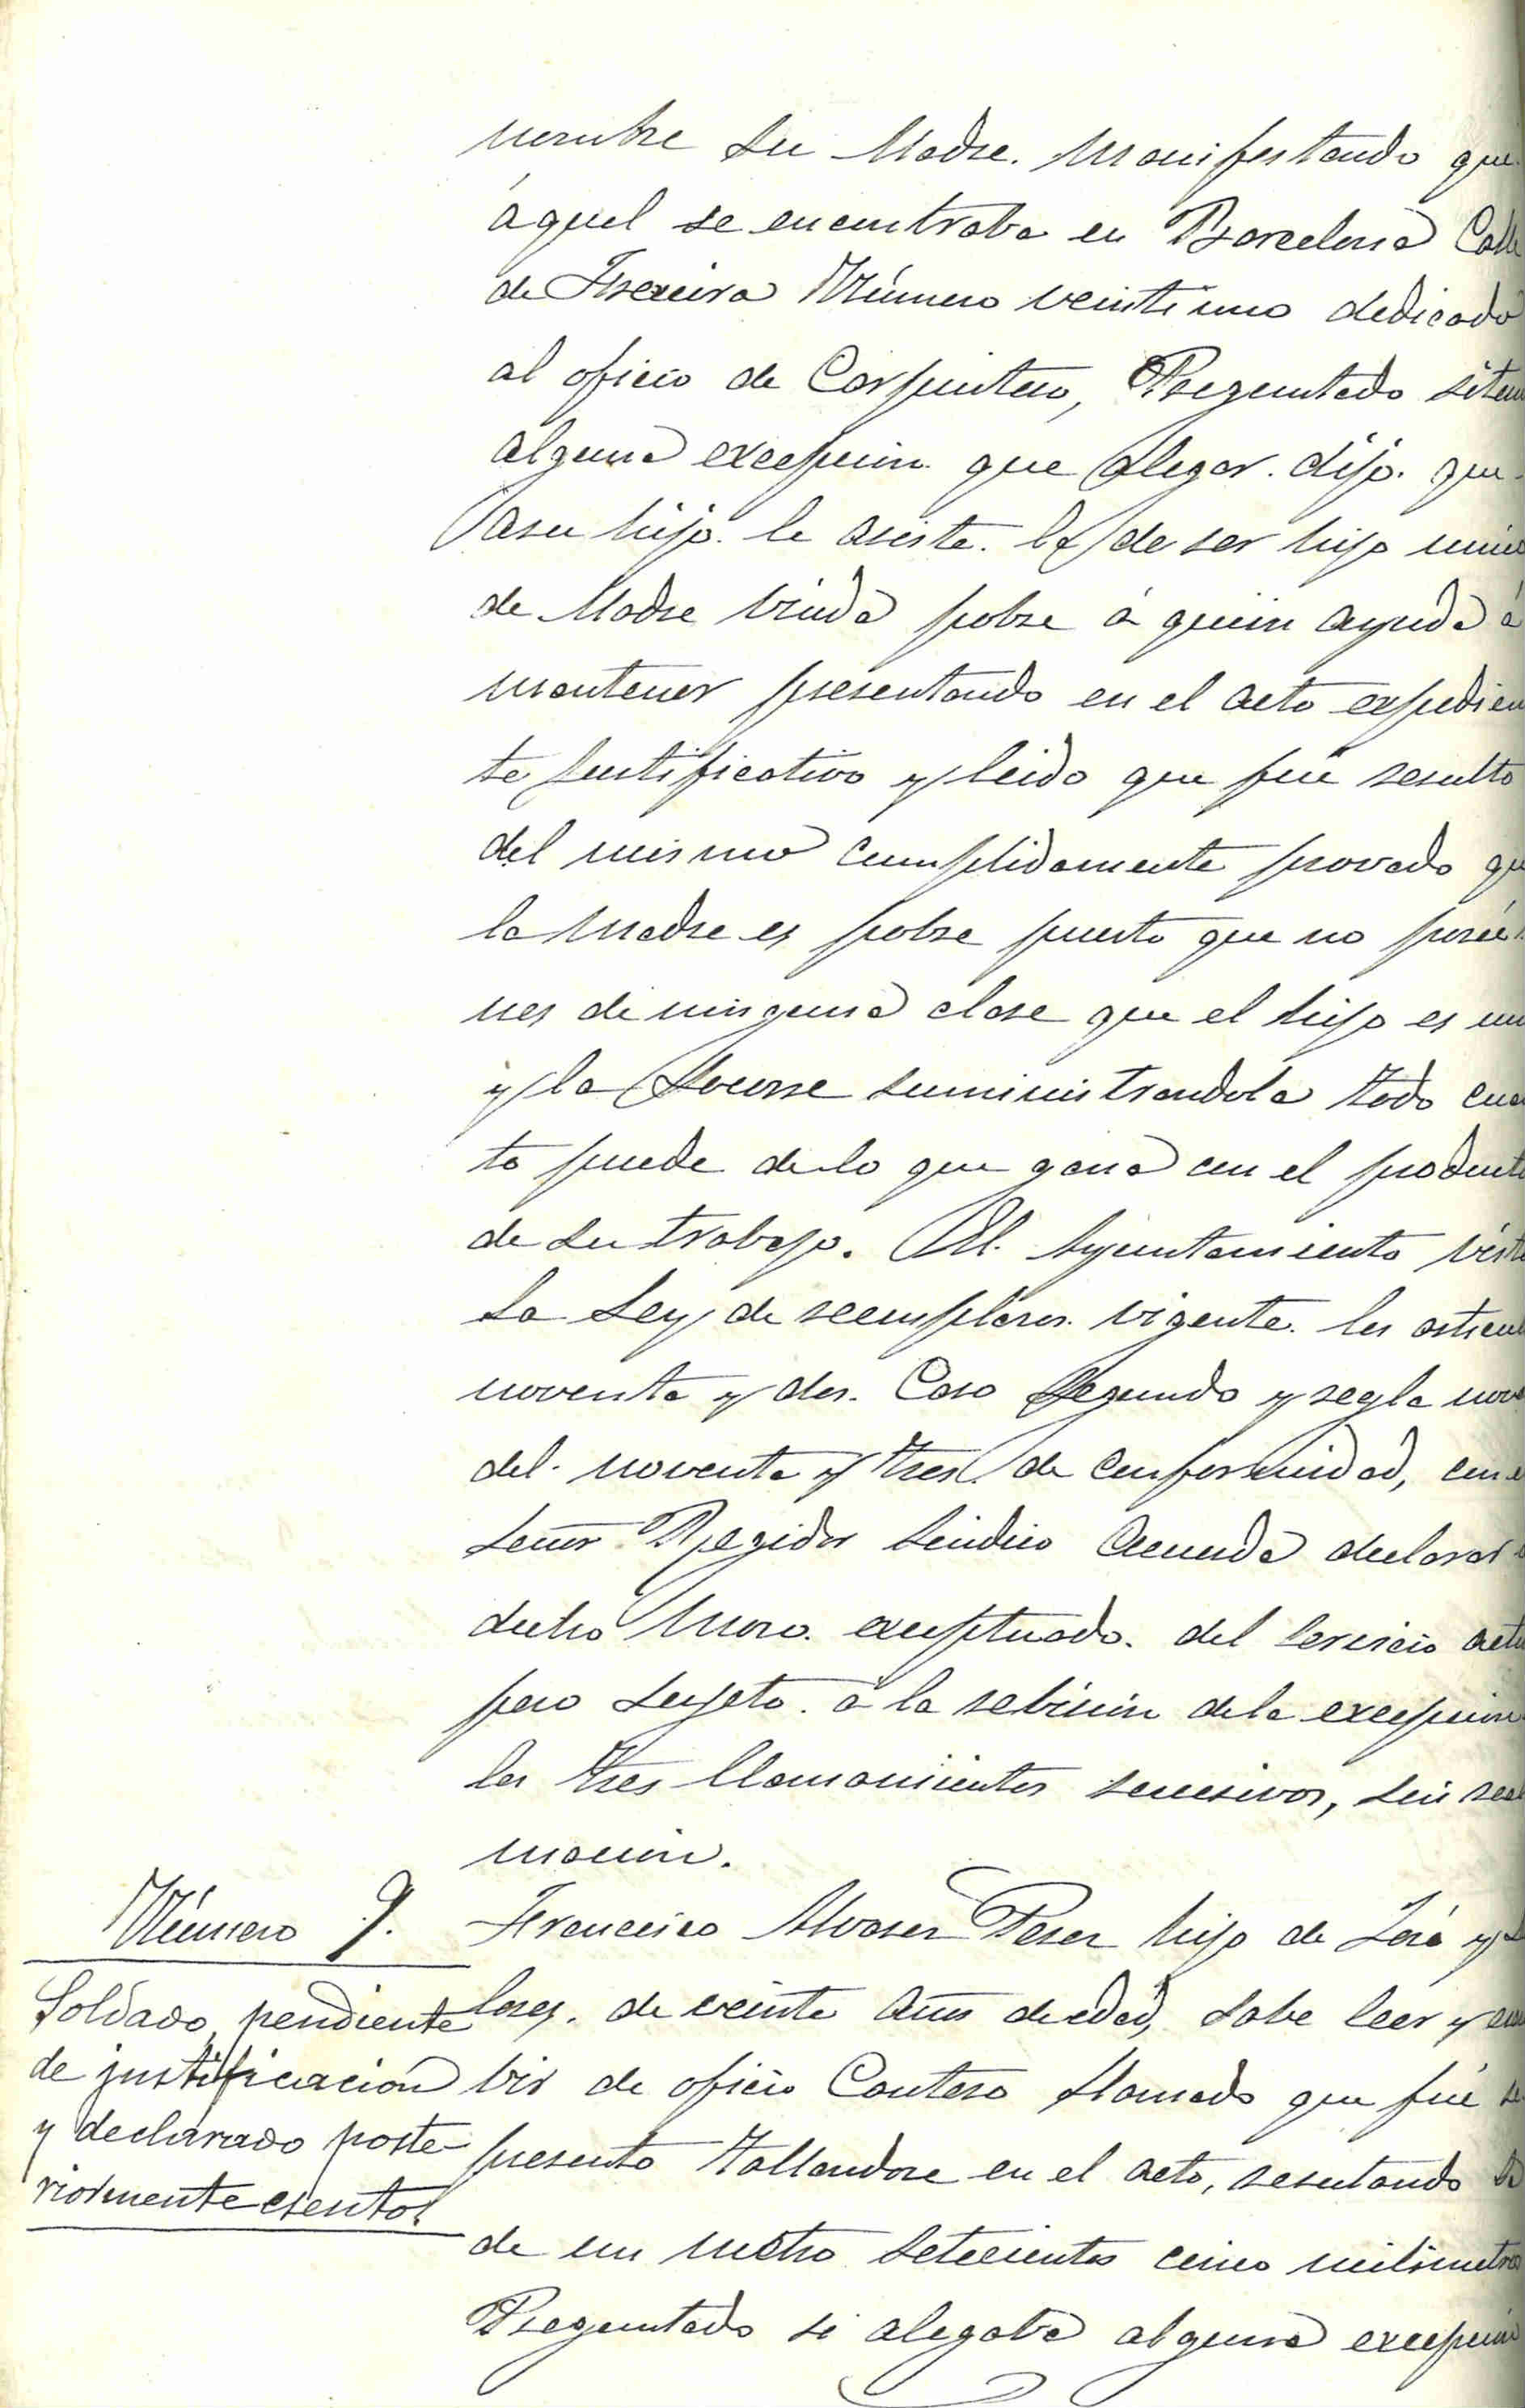 nombre su Madre. Manifestando que
áquel se encontraba en Barcelona Calle
de Número veintiuno dedicado
al oficio de Carpintero, Preguntado si ten
alguna excepcion que alegar. dijo. que
asu hijo. le asiste. la de ser hijo unico
de Madre Viuda pobre á quien ayuda á
mantener presentando en el acto expedien
te justificativo y leido que fué resulta
del mismo cumplidamente provado qu
la Madre es pobre puesto que no poseé
nes de ninguna clase que el hijo es un
y la Socorre suministrandola todo cua
to puede de lo que gana con el producto
de su trabajo. El Ayuntamiento visto
la Ley de reemplazos vigente. los articul
noventa y dos. Caso Segundo y regla nov
del. noventa y tres de conformidad, con e
Señor Regidor Sindico Acuerda declarar
dicho Mozo. exceptuado. del Servicio actu
pero sujeto. á la rebision dela excepcion
los tres llamamientos sucesivos, sin recl
macion.
Número 9.
Soldado, pendiente
de justificación
y declarado poste-
riormente esento.
Francisco Alvarez Perez hijo de José y
de veinte años de edad, sabe leer y escri
bir de oficio Cantero llamado que fué se
presento tallandose en el acto, resultando
de un metro setecientos cinco milimetros
Preguntado si alegaba alguna excepcion